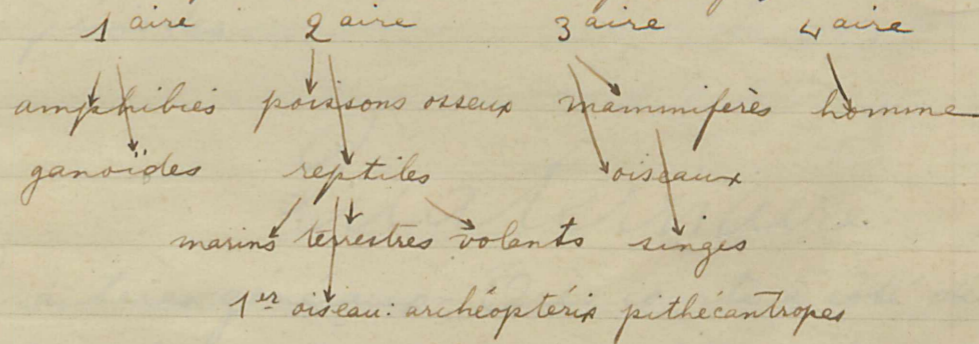 1 aire 2 aire 3 aire 4 aire
amphibies poissons osseux mammifères homme
ganoïdes reptiles oiseaux
marins terrestres volants singes
1er oiseau: archéoptérix pithécantropes